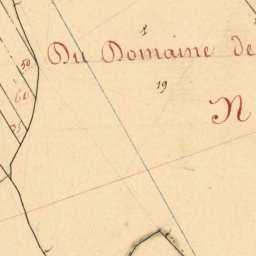 1
Du Domaine de
50
19
61
N